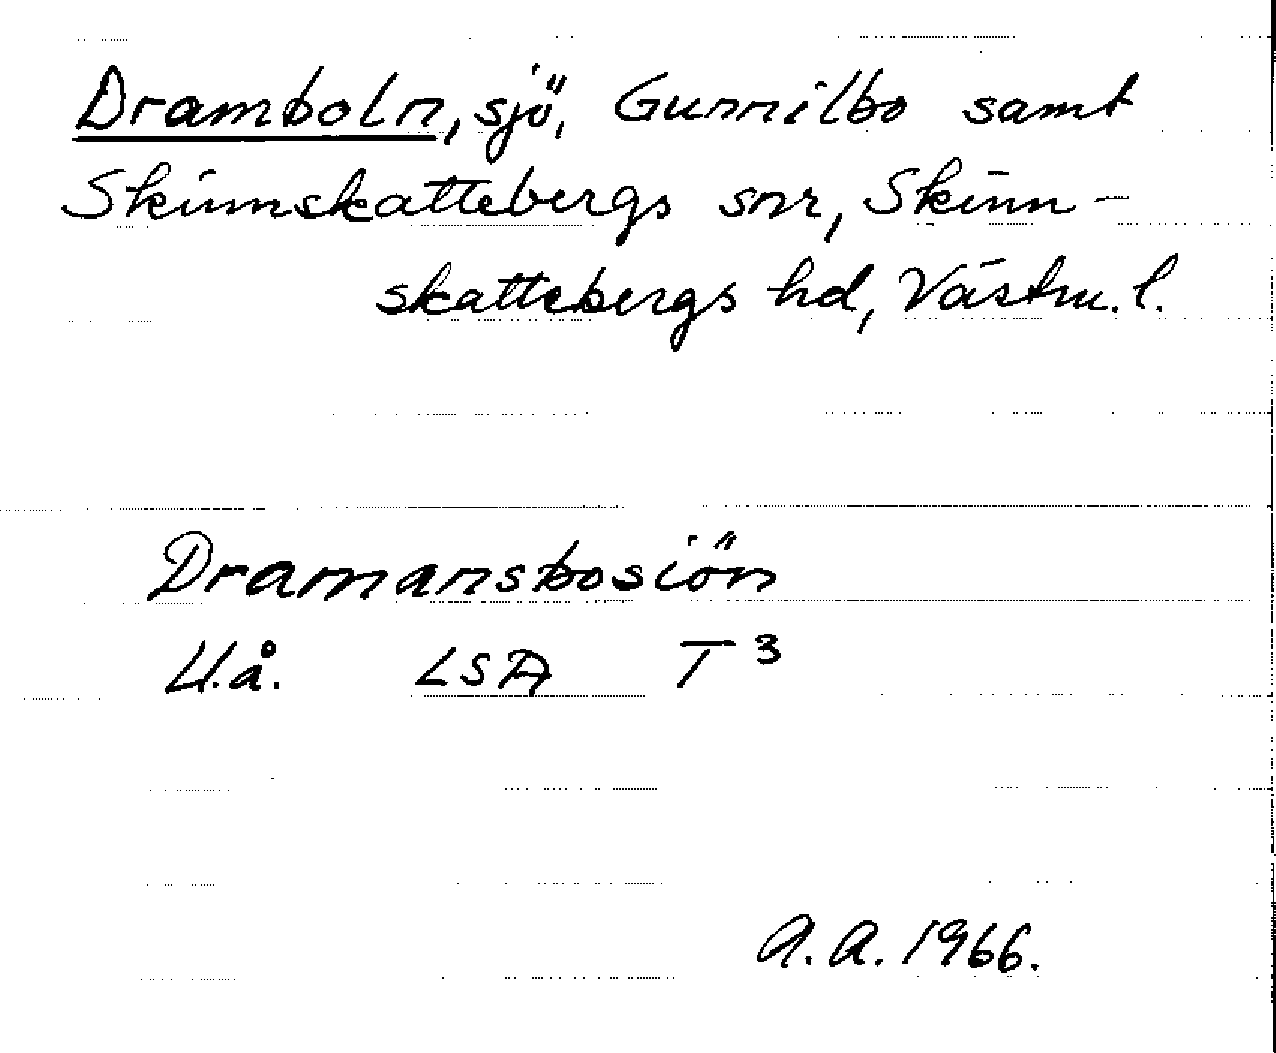 Dramboln, sjö, Gunnilbo samt
Skinnskattebergs snr, Skinn-
skattebergs hd, Västm. l.
Dramansbosiön
U.å. LSA T³
A.A. 1966.